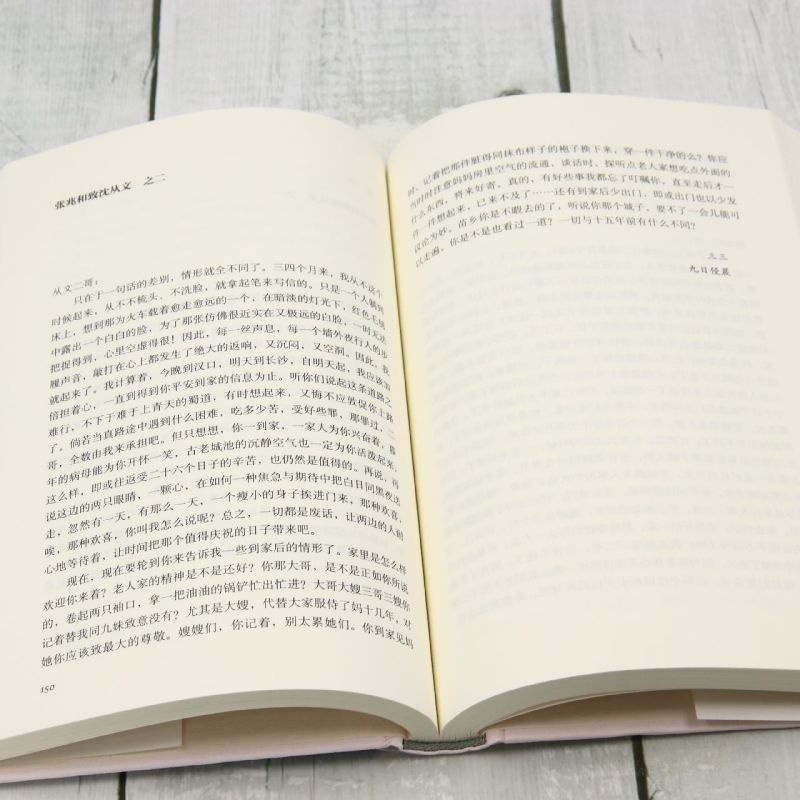 张兆和致沈从文　之二
从文二哥：
只在于一句话的差别，情形就全不同了。三四个月来，我从不这个
时候起来，从不不梳头、不洗脸，就拿起笔来写信的。只是一个人躺到
床上，想到那为火车载着愈走愈远的一个，在暗淡的灯光下，红色毛毯
中露出一个白白的脸，为了那张仿佛很近实在又极远的白脸，一时无法
把捉得到，心里空虚得很！因此，每一丝声息，每一个墙外夜行人的步
履声音，敲打在心上都发生了绝大的返响，又沉闷，又空洞。因此，我
就起来了。我计算着，今晚到汉口，明天到长沙，自明天起，我应该加
倍担着心，一直到得到你平安到家的信息为止。听你们说起这条道路之
难行，不下于难于上青天的蜀道，有时想起来，又悔不应敦促你上路
了。倘若当真路途中遇到什么困难，吃多少苦，受好些罪，那罪过，二
哥，全数由我来承担吧。但只想想，你一到家，一家人为你兴奋着，暮
年的病母能为你开怀一笑，古老城池的沉静空气也一定为你活泼起来，
这么样，即或往返受二十六个日子的辛苦，也仍然是值得的。再说，再
说这边的两只眼睛，一颗心，在如何一种焦急与期待中把白日同黑夜送
走，忽然有一天，有那么一天，一个瘦小的身子挨进门来，那种欢喜，
唉，那种欢喜，你叫我怎么说呢？总之，一切都是废话，让两边的人耐
心地等待着，让时间把那个值得庆祝的日子带来吧。
现在，现在要轮到你来告诉我一些到家后的情形了。家里是怎么样
欢迎你来着？老人家的精神是不是还好？你那大哥，是不是正如你所说
的，卷起两只袖口，拿一把油油的锅铲忙出忙进？大哥大嫂三哥三嫂你
记着替我同九妹致意没有？尤其是大嫂，代替大家服侍了妈十几年，对
她你应该致最大的尊敬。嫂嫂们，你记着，别太累她们。你到家见妈
150
时，记着把那件脏得同抹布样子的袍子换下来，穿一件干净的么？你应
当时时注意妈妈房里空气的流通，谈话时，探听点老人家想吃点外面的
什么东西，将来好寄。真的，有好些事我都忘了叮嘱你，直至走后才一
件一件想起来，已来不及了……还有到家后少出门，即或出门也以少发
议论为妙。苗乡你是不暇去的了，听说你那个城子，要不了一会儿能可
以走遍，你是不是也看过一道？一切与十五年前有什么不同？
三三
九日侵晨